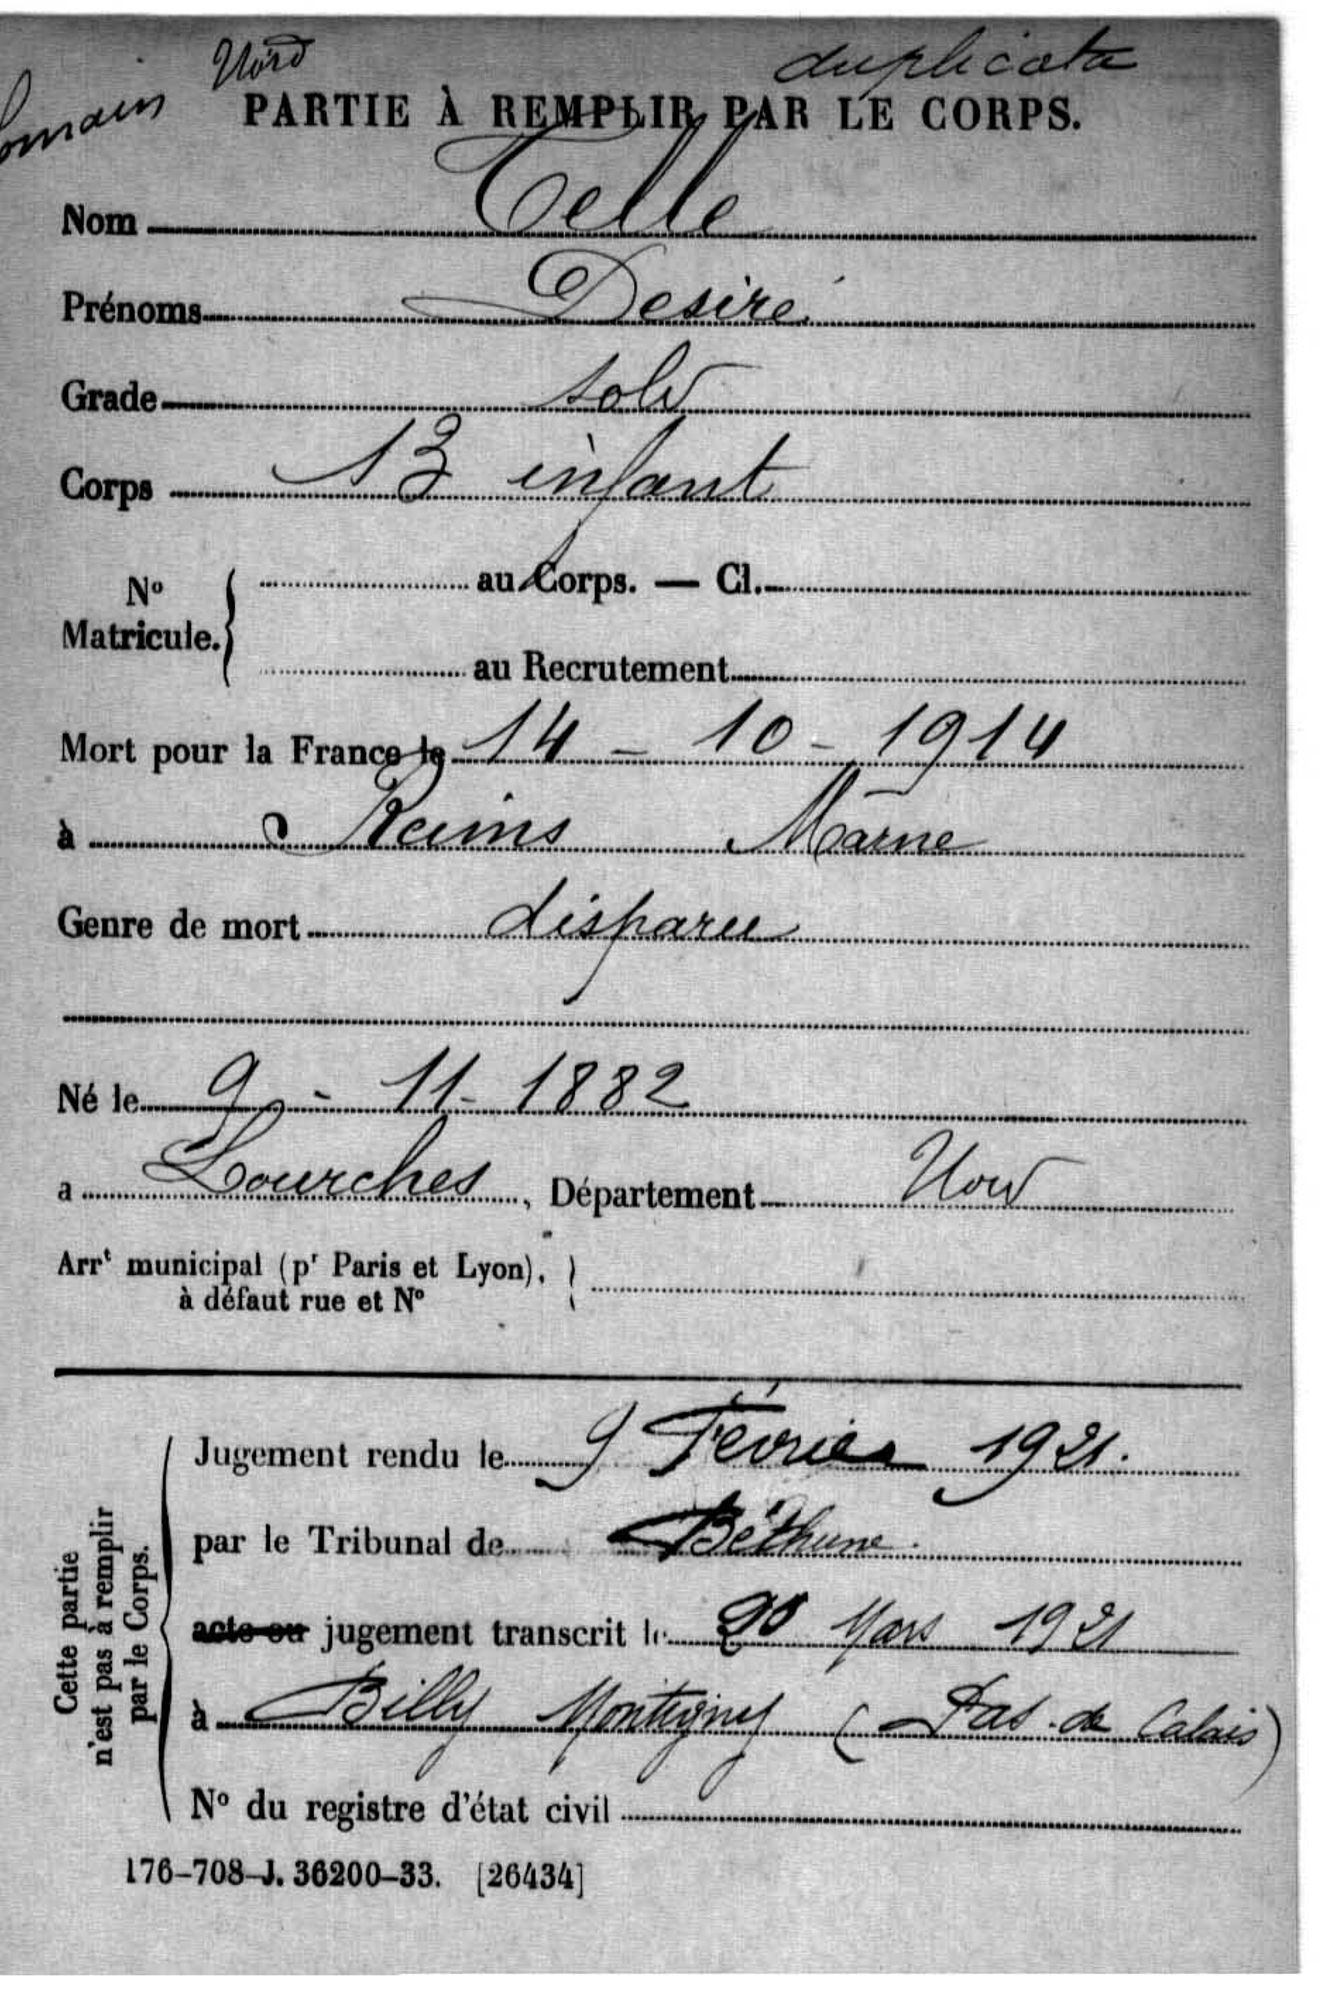 Nord duplicata
PARTIE À REMPLIR PAR LE CORPS.
Nom Telle
Prénoms Desiré
Grade sold
Corps 13 infant
N° Matricule. { au Corps. — Cl.
au Recrutement
Mort pour la France le 14 - 10 - 1914
à Reims Marne
Genre de mort disparu
Né le 9 - 11 - 1882
a Lourches, Département Nord
Arrt municipal (pr Paris et Lyon), }
à défaut rue et N°
Cette partie
n'est pas à remplir
par le Corps.
Jugement rendu le 9 Février 1921.
par le Tribunal de Béthune.
acte ou jugement transcrit le Mars 1921
à Billy Montigny (Pas-de Calais)
N° du registre d'état civil
176-708-J. 36200-33. [26434]